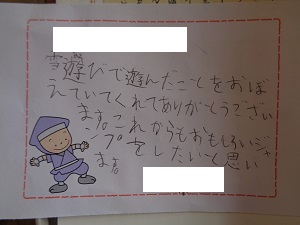 雪遊びで遊んだことをおぼ
えていてくれてありがとうござい
ます。これからもおもしろいジャ
ンプをしたいと思い
ます。